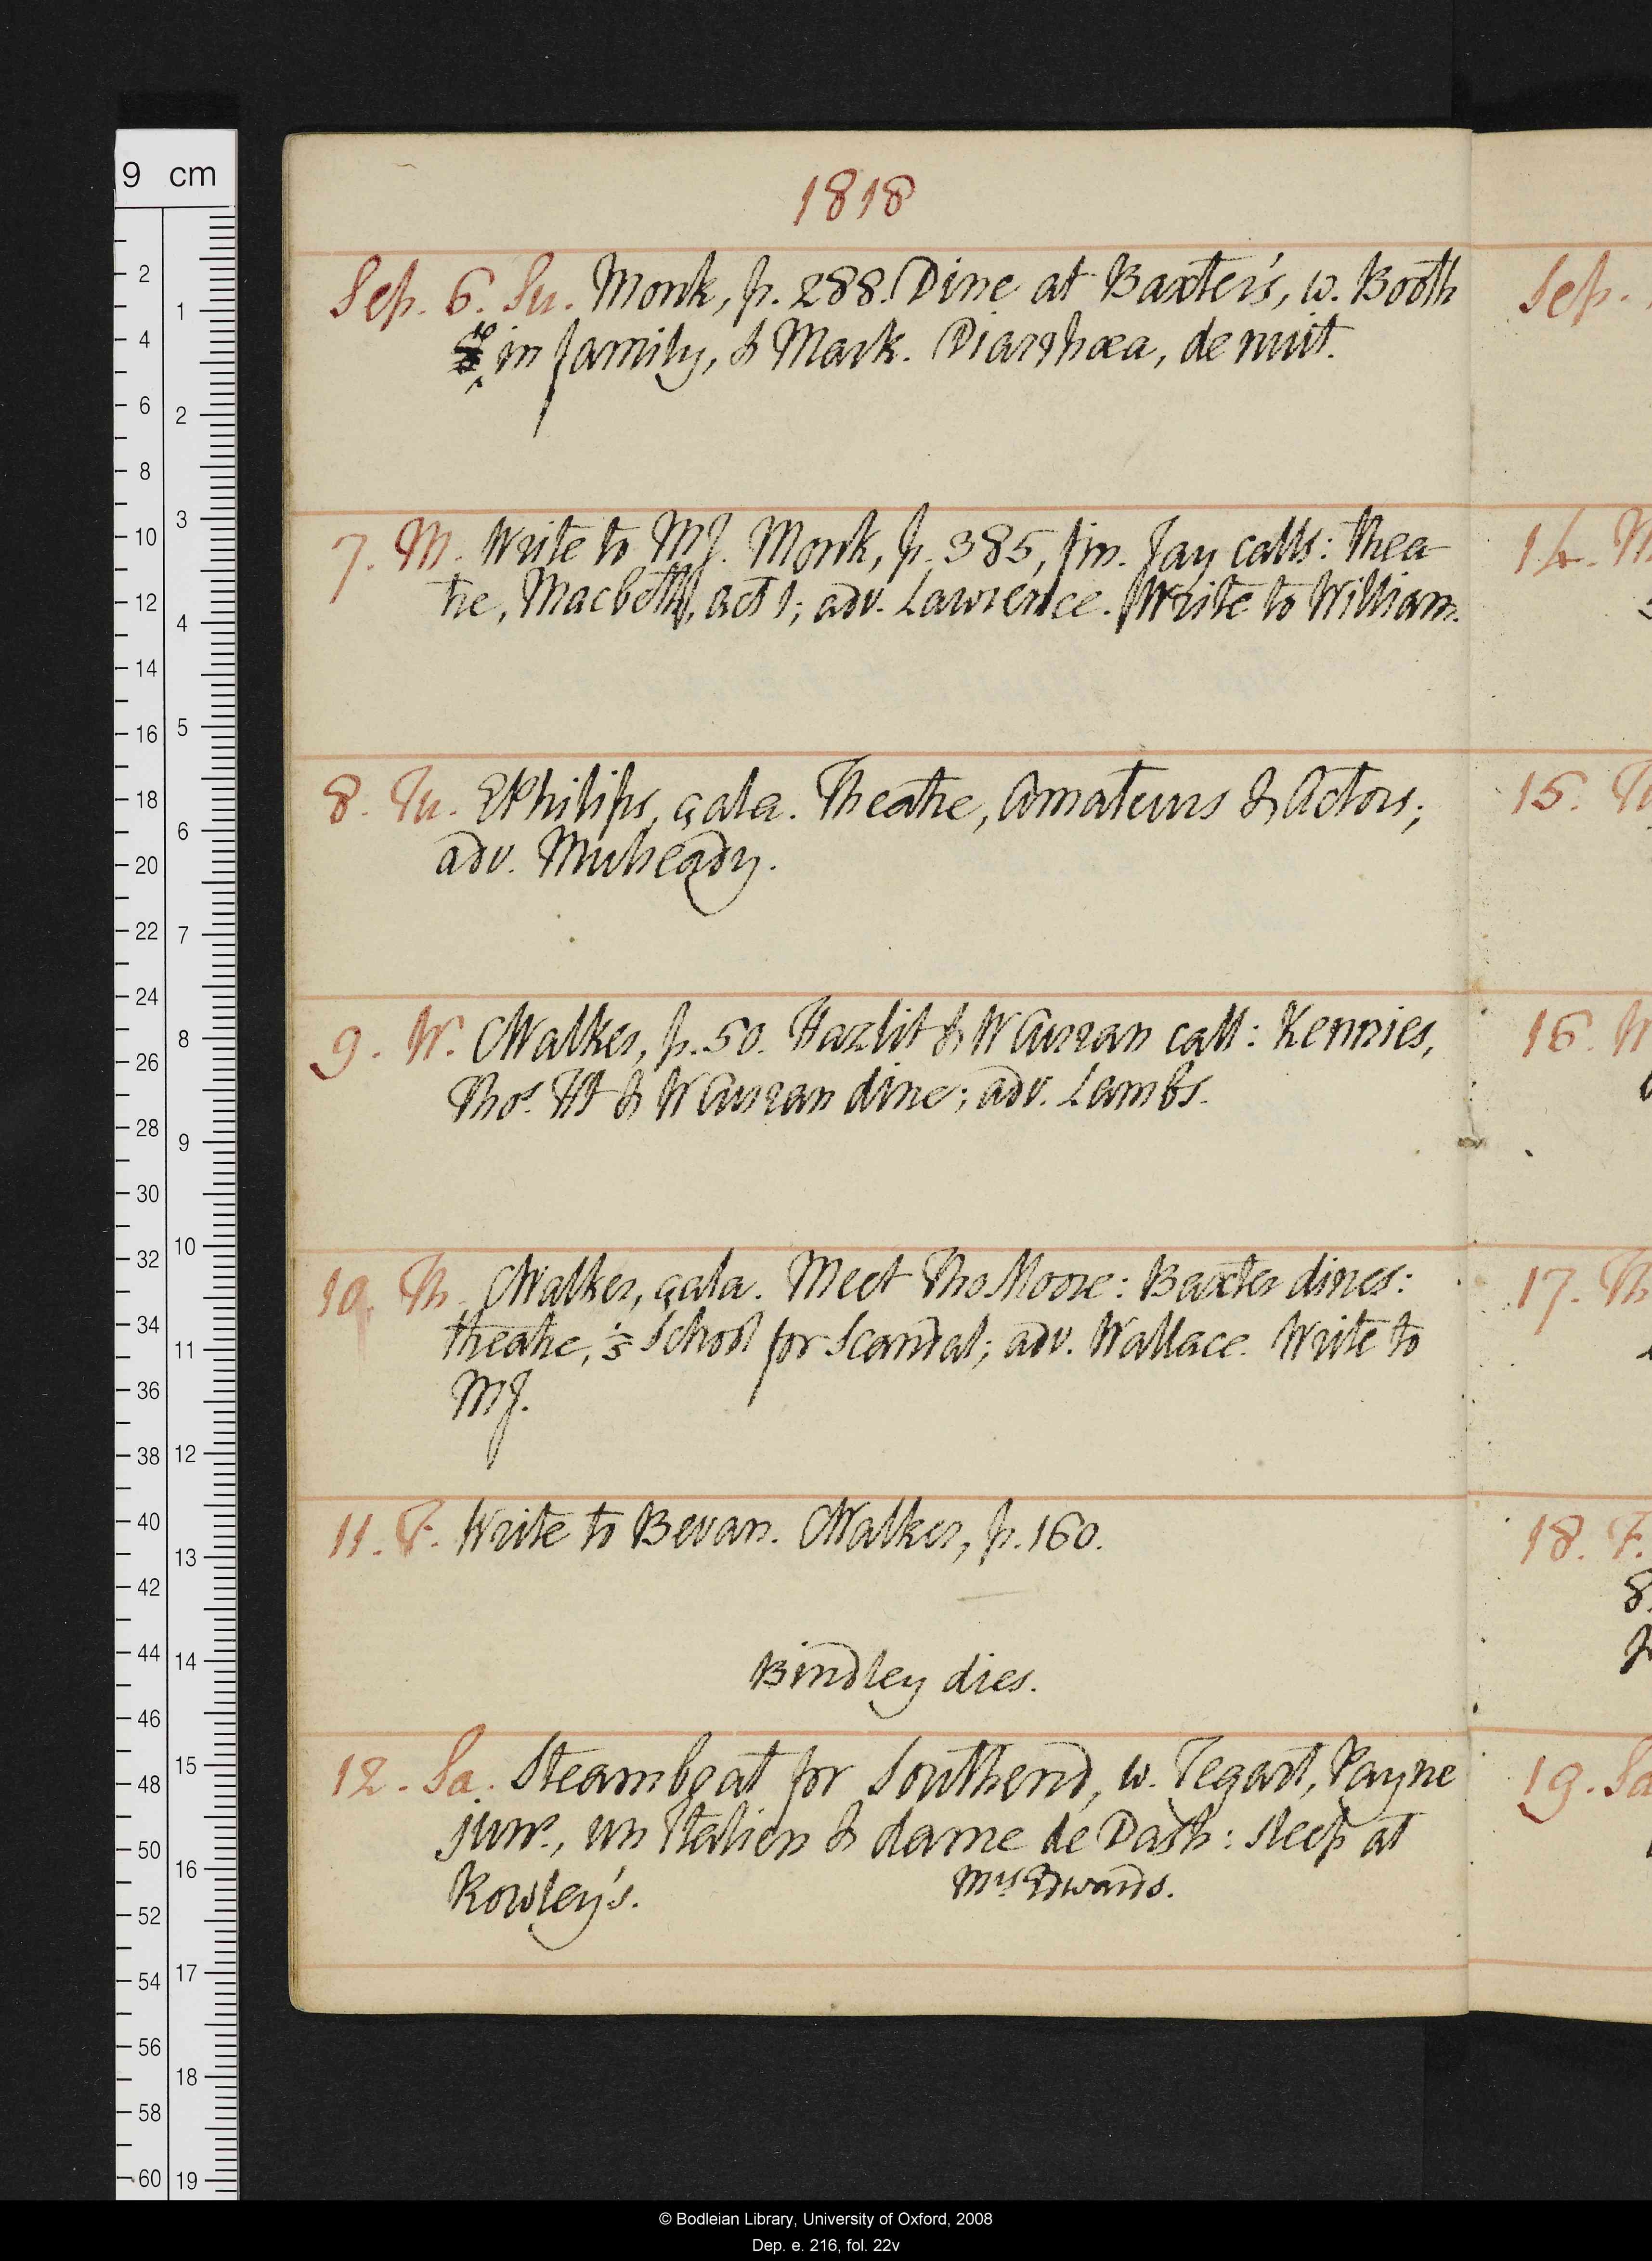 1818
Sep. 6. Su. Monk, p. 288. Dine at Baxter's, w. Booth
in family, & Mark. Diarrhœa, de nuit.
7. M. Write to MJ. Monk, p. 385, fin. Jay calls: thea-
tre, Macbeth, act 1; adv. Lawrence. Write to William.
8. Tu. EPhilips, çala. Theatre, Amateurs & Actors;
adv. Mulready.
9. W. CWalker, p. 50. Hazlit & WCurran call: Kennies,
Thos. Ht & WCurran dine; adv. Lambs.
10. Th. CWalker, çala. Meet Tho Moore: Baxter dines:
theatre, ⅗ School for Scandal; adv. Wallace. Write to
MJ.
11. F. Write to Bevan. CWalker, p. 160.
Bindley dies.
12. Sa. Steamboat for Southend, w. Tegart, Payne
junr., un Italien & dame de Dash: sleep at
Rowley's. Mrs Edwards.
Sep.
14. M
15. Tu
16. W
17. Th
18. F.
8.
19. Sa
9 cm
2
4
6
8
10
12
14
16
18
20
22
24
26
28
30
32
34
36
38
40
42
44
46
48
50
52
54
56
58
60
1
2
3
4
5
6
7
8
9
10
11
12
13
14
15
16
17
18
19
© Bodleian Library, University of Oxford, 2008
Dep. e. 216, fol. 22v